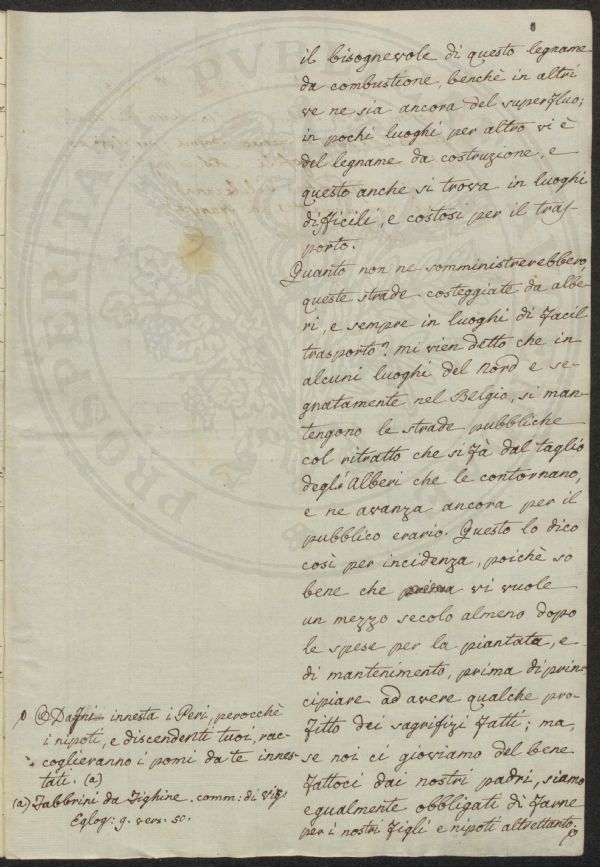 il bisognevole di questo legname
da combustione, benchè in altri
ve ne sia ancora del superfluo;
in pochi luoghi per altro vi è
del legname da costruzione, e
questo anche si trova in luoghi
difficili, e costosi per il tras-
porto.
Quanto non ne somministrerebbero
queste strade costeggiate da albe-
ri, e sempre in luoghi di facil
trasporto? mi vien detto che in
alcuni luoghi del Nord e se-
gnatamente nel Belgio, si man-
tengono le strade pubbliche
col ritratto che si fà dal taglio
degl'Alberi che le contornano,
e ne avanza ancora per il
pubblico erario. Questo lo dico
così per incidenza, poichè so
bene che vi vuole
un mezzo secolo almeno dopo
le spese per la piantata, e
di mantenimento, prima di prin-
cipiare ad avere qualche pro-
fitto dei sagrifizi fatti; ma,
se noi ci gioviamo del bene
fattoci dai nostri padri, siamo
egualmente obbligati di farne
per i nostri figli e nipoti altrettanto.
Dafni innesta i Peri, perocchè
i nipoti, e discendenti tuoi, rac-
coglieranno i pomi da te innes-
tati. (a)
(a) Fabbrini da Fighine. comm: di Virg:
Eglog: 9. vers. 50.
PVB